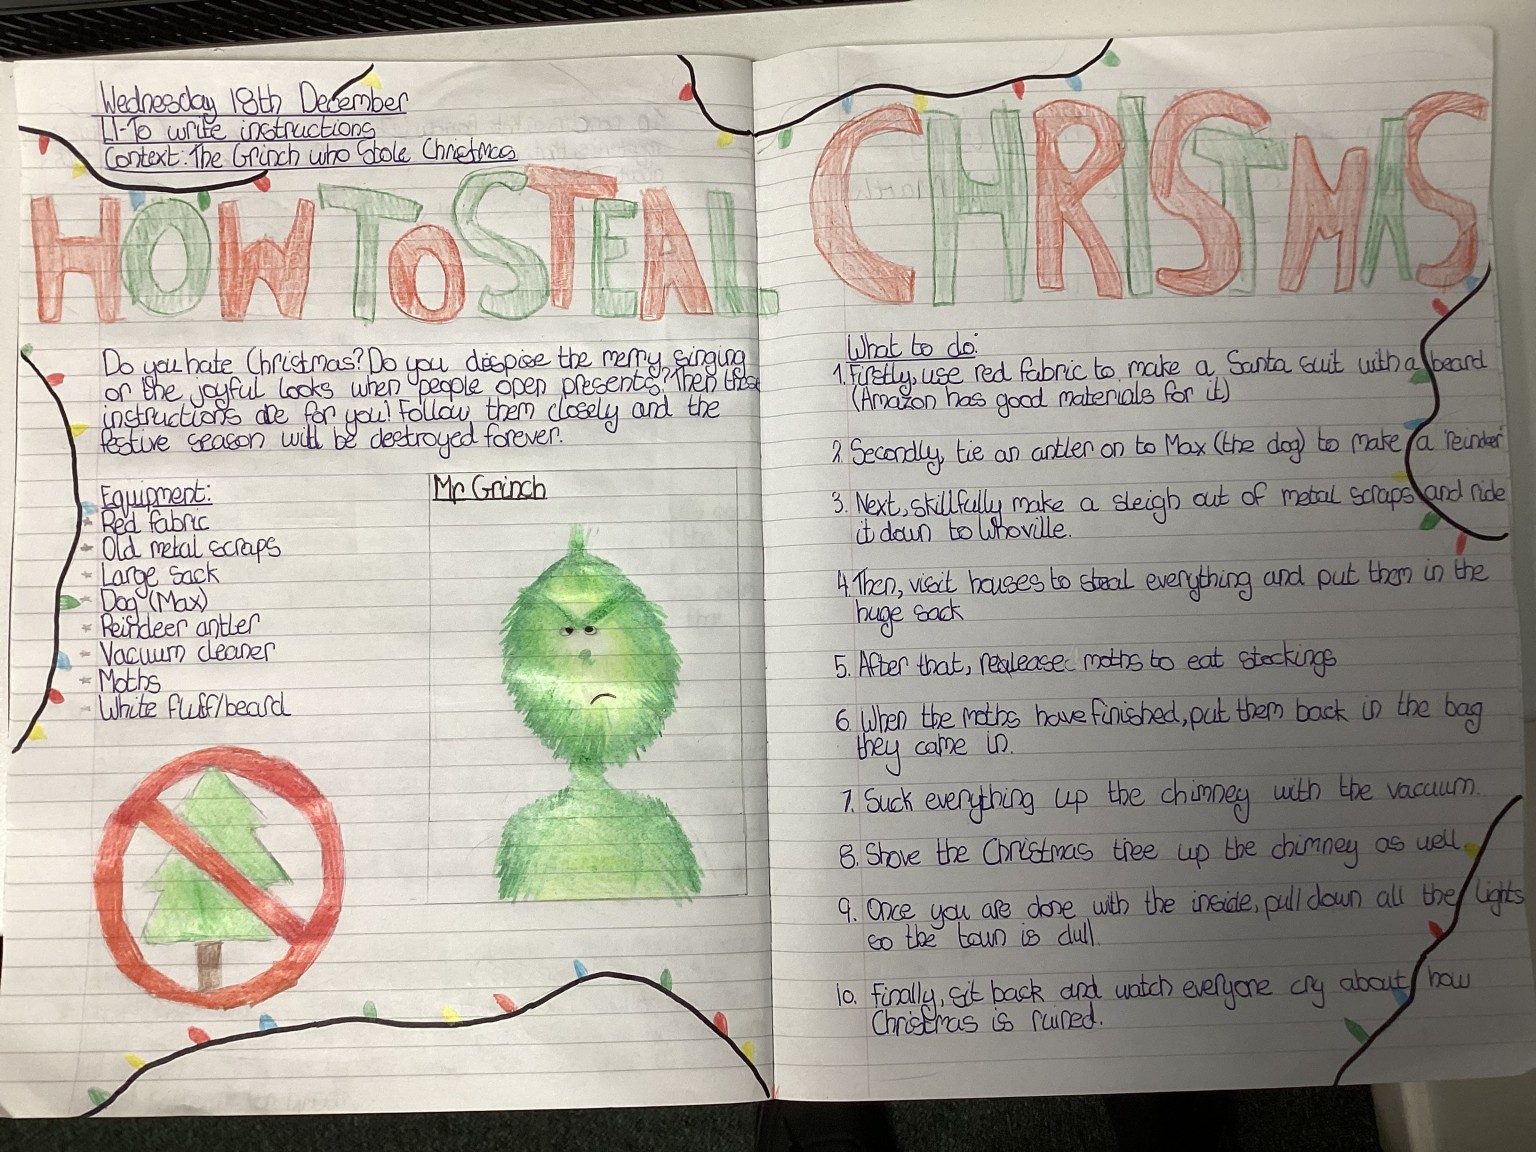 Wednesday 18th December
LI-To write instructions
Context: The Grinch who Stole Christmas
HOW TO STEAL CHRISTMAS
Do you hate Christmas? Do you dispise the merry singing
or the joyful looks when people open presents? Then these
instructions are for you! Follow them closely and the
festive season will be destroyed forever.
Equipment:
Red fabric
Old metal scraps
Large sack
Dog (Max)
Reindeer antler
Vacuum cleaner
Moths
White fluff/beard
Mr Grinch
What to do:
1. Firstly, use red fabric to make a Santa suit with a beard
(Amazon has good materials for it)
2. Secondly, tie an antler on to Max (the dog) to make a 'reindeer'
3. Next, skillfully make a sleigh out of metal scraps and ride
it down to Whoville.
4. Then, visit houses to steal everything and put them in the
huge sack
5. After that, realease moths to eat stockings
6. When the moths have finished, put them back in the bag
they came in.
7. Suck everything up the chimney with the vacuum.
8. Shove the Christmas tree up the chimney as well.
9. Once you are done with the inside, pull down all the lights
so the town is dull.
10. Finally, sit back and watch everyone cry about how
Christmas is ruined.